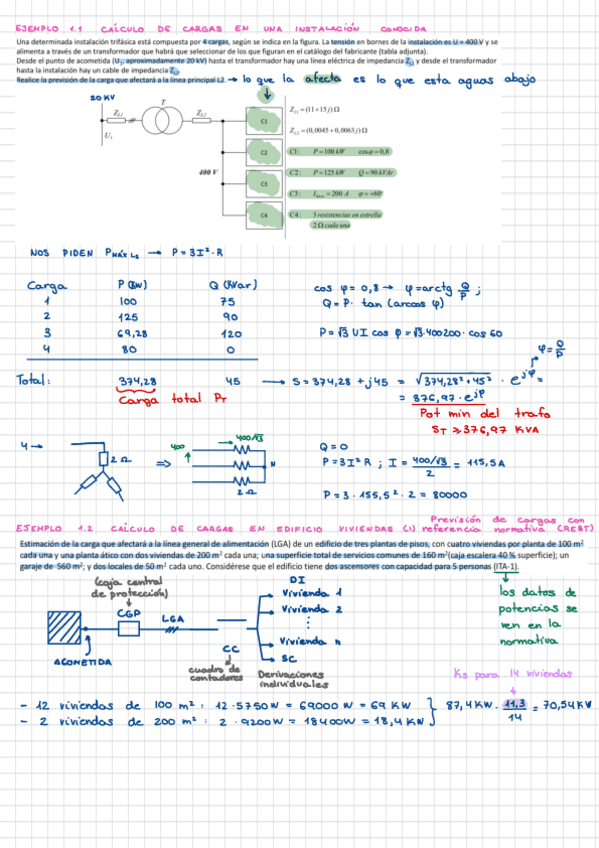 EJEMPLO 1.1 CÁLCULO DE CARGAS EN UNA INSTALACIÓN CONOCIDA
Una determinada instalación trifásica está compuesta por 4 cargas, según se indica en la figura. La tensión en bornes de la instalación es U = 400 V y se
alimenta a través de un transformador que habrá que seleccionar de los que figuran en el catálogo del fabricante (tabla adjunta).
Desde el punto de acometida (U₁, aproximadamente 20 kV) hasta el transformador hay una línea eléctrica de impedancia Z_L1 y desde el transformador
hasta la instalación hay un cable de impedancia Z_L2.
Realice la previsión de la carga que afectará a la línea principal L2. → lo que la afecta es lo que esta aguas abajo
20 KV
Z_L1 T Z_L2
U₁
400 V
C1
C2
C3
C4
Z_L1 = (11+15j) Ω
Z_L2 = (0,0045+0,0063j) Ω
C1: P=100 kW cosφ=0,8
C2: P=125 kW Q=90 kVAr
C3: = 200 A φ=+60º
C4: 3 resistencias en estrella
2 Ω cada una
NOS PIDEN P MÁX L2 → P=3I²·R
Carga P (kW) Q (KVar)
1 100 75
2 125 90
3 69,28 120
4 80 0
Total: 374,28 45
Carga total P_T
cos φ = 0,8 → φ=arctg Q/P ;
Q = P· tan (arccos φ)
P = √3 UI cos φ = √3·400·200· cos 60
φ = Q/P
→ S = 374,28 + j45 = √374,28² + 45² · e^jφ =
= 376,97 · e^jφ
Pot min del trafo
S_T ≥ 376,97 KVA
4 → 2 Ω ⇒ 400 400/√3 N 2 Ω
Q = 0
P = 3I²R ; I = 400/√3 / 2 = 115,5 A
P = 3 · 155,5² · 2 = 80000
EJEMPLO 1.2 CÁLCULO DE CARGAS EN EDIFICIO VIVIENDAS (1) Previsión de cargas con referencia normativa (REBT)
Estimación de la carga que afectará a la línea general de alimentación (LGA) de un edificio de tres plantas de pisos, con cuatro viviendas por planta de 100 m²
cada una y una planta ático con dos viviendas de 200 m² cada una; una superficie total de servicios comunes de 160 m² (caja escalera 40 % superficie); un
garaje de 560 m²; y dos locales de 50 m² cada uno. Considérese que el edificio tiene dos ascensores con capacidad para 5 personas (ITA-1).
(caja central
de protección)
CGP
LGA
ACOMETIDA
CC
cuadro de
contadores
DI
Vivienda 1
Vivienda 2
⋮
Vivienda n
SC
Derivaciones
individuales
los datos de
potencias se
ven en la
normativa
Ks para 14 viviendas
- 12 viviendas de 100 m² : 12·5750W = 69000 W = 69 KW
- 2 viviendas de 200 m² : 2·9200W = 18400W = 18,4 KW
} 87,4 KW · 11,3/14 = 70,54KW